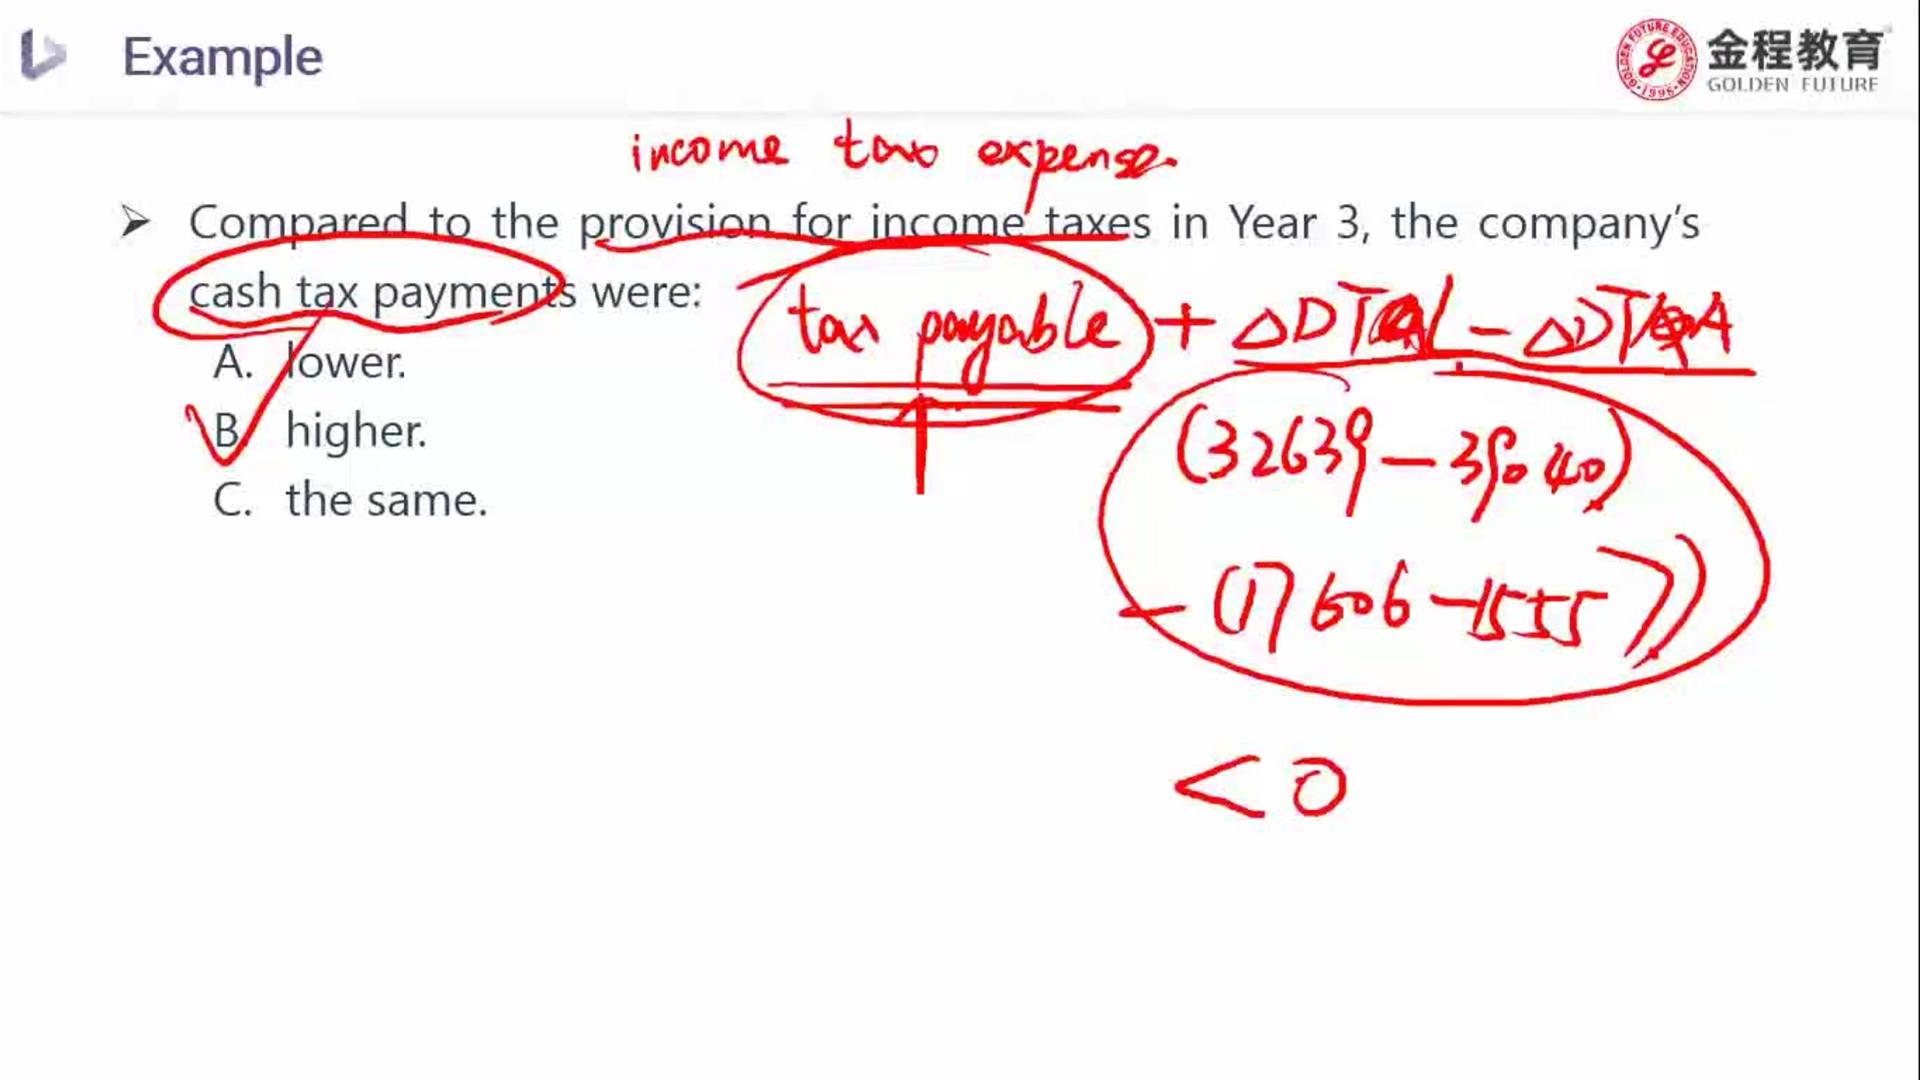 Example
金程教育
GOLDEN FUTURE
GOLDEN FUTURE EDUCATION
·1998·
income tax expense.
➤ Compared to the provision for income taxes in Year 3, the company's
cash tax payments were:
tax payable + ΔDTL - ΔDTA
A. lower.
B. higher.
C. the same.
(32639 - 39040)
- (17606 - 1555)
< 0